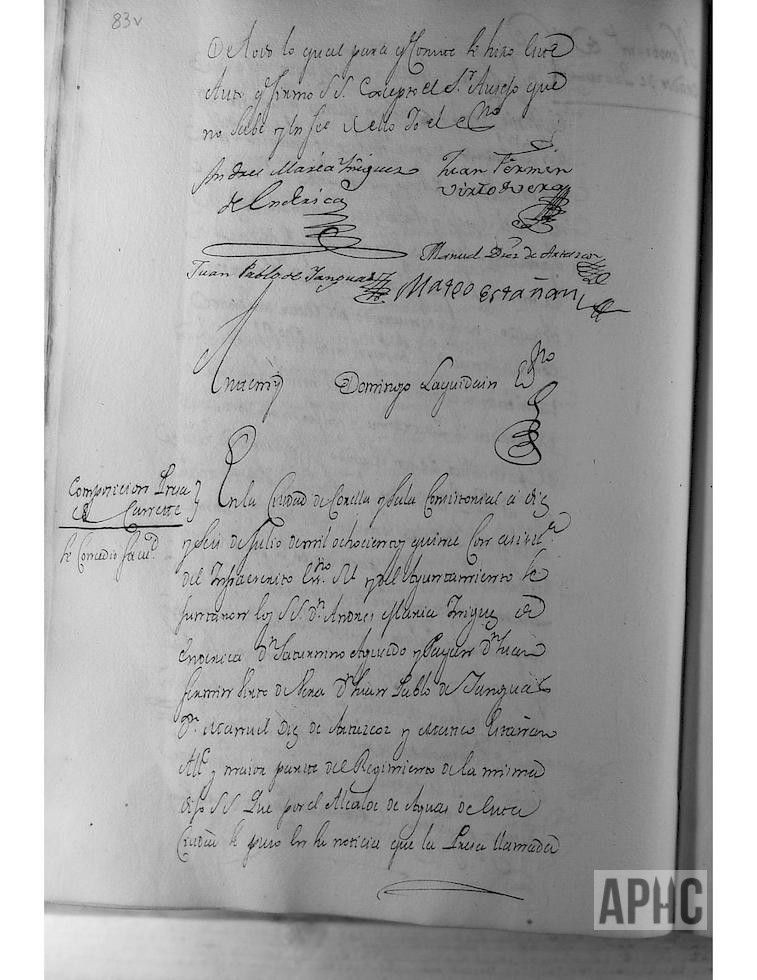 83v
De todo lo qual para q Conste se hizo este
Auto q firmo S.S. Excepto el Sr. Ausejo que
no sabe y en fee de ello Yo el Esno
Andres Maria Yñiguez
de Enderica
Juan Fermin
Virto de Vera
Manuel Diez de Artazcoz
Juan Pablo de Sanguas
Mateo Estañan
Antemy Domingo Laquidain Esno
Composicion Presa
de Carrette
se Concedio facud.
En la Ciudad de Corella y Sala Consistorial a diez
y seis de Julio de mil ochocientos quince Con asista.
del Infraescrito Esno. Rl. y del Ayuntamiento se
juntaron los S.S. Dn. Andres Maria Iniguez de
Enderica Dn. Saturnino Agreda y Payan Dn. Juan
fermin Virto de Vera Dn. Juan Pablo de Sanguas
Dn. Manuel Diez de Artazcoz y Mateo Estañan
Alce. y maior parte del Regimiento de la misma
dijo S.S. Que por el Alcalde de Aguas de esta
Ciudad se puso en su noticia que la Presa llamada
APHC